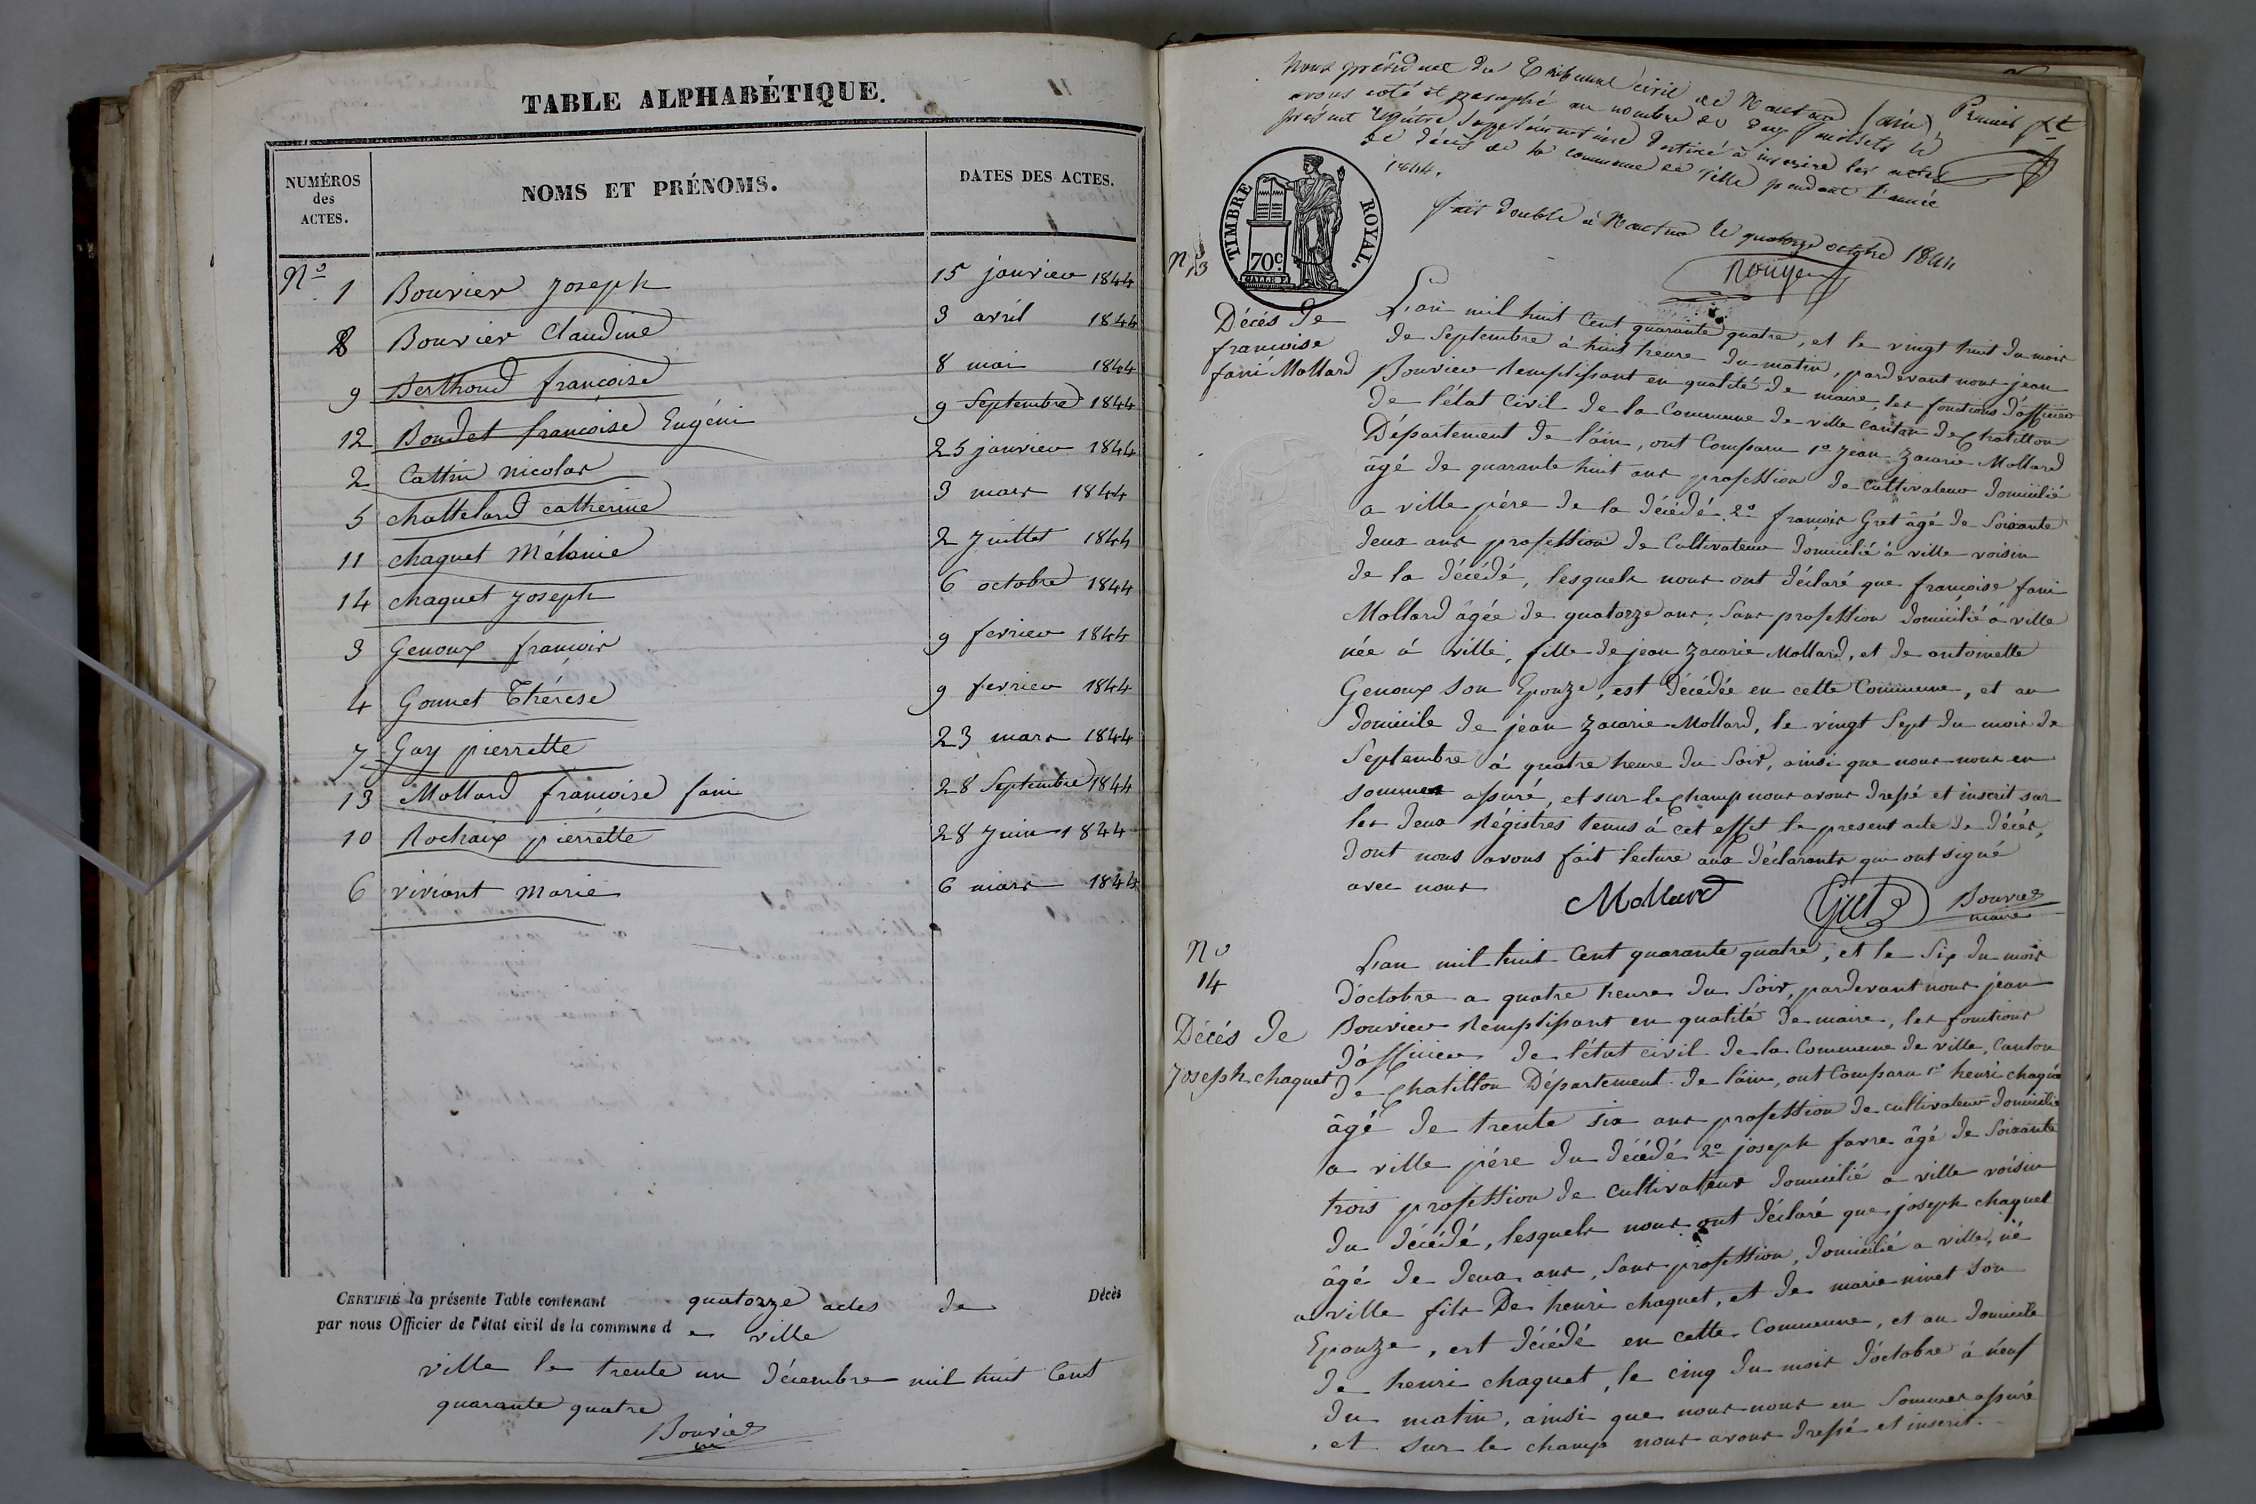 TABLE ALPHABÉTIQUE.
NUMÉROS des ACTES. NOMS ET PRÉNOMS. DATES DES ACTES.
No 1 Bouvier Joseph 15 janvier 1844
8 Bouvier Claudine 3 avril 1844
9 Berthoud françoise 8 mai 1844
12 Boudet françoise Eugéni 9 Septembre 1844
2 Cattin nicolas 25 janvier 1844
5 chattelard catherine 3 mars 1844
11 chaquet Mélanie 2 Juillet 1844
14 chaquet Joseph 6 octobre 1844
3 Genoux françois 9 fevrier 1844
4 Gonnet Thérese 9 fevrier 1844
7 Gay pierrette 23 mars 1844
13 Mollard françoise fani 28 Septembre 1844
10 Rochaix pierrette 28 Juin 1844
6 viviant Marie 6 mars 1844
CERTIFIÉ la présente Table contenant quatorze actes de Décès
par nous Officier de l'état civil de la commune de ville
ville le trente un décembre mil huit Cent
quarante quatre
Bouvier
Nous président du Tribunal civil de Nantua (ain) Premier
avons coté et paraphé au nombre de deux feuillets le
présent régistre supplémentaire destiné à inscrire les actes
de décès de la commune de ville pendant l'année
1844.
fait double à Nantua le quatorze octobre 1844
TIMBRE ROYAL.
70c
No 13
Décès de
françoise
fani Mollard
L'an mil huit Cent quarante quatre, et le vingt huit du mois
de Septembre à huit heure du matin, pardevant nous jean
Bouvier Remplissant en qualité de maire, les fonctions d'officier
de l'état Civil de la Commune de ville Canton de Chatillon
Département de l'ain, ont Comparu 1o jean Zacarie Mollard
âgé de quarante huit ans profession de Cultivateur domicilié
a ville père de la décédé 2o françois Gret âgé de Soixante
deux ans profession de Cultivateur domicilié à ville voisin
de la décédé, lesquels nous ont déclaré que françoise fani
Mollard âgée de quatorze ans, Sans profession domicilié à ville
née à ville, fille de jean Zacarie Mollard, et de antoinette
Genoux Son Epouze, est décédée en cette Commune, et au
domicile de jean Zacarie Mollard, le vingt Sept du mois de
Septembre à quatre heure du Soir, ainsi que nous nous en
sommes assuré, et sur le Champ nous avons dressé et inscrit sur
les deux Régistres tenus à cet effet le present acte de décès,
dont nous avons fait lecture aux déclarants qui ont signé
avec nous
Mollard Gret Bouvier
maire
No
14
Décès de
Joseph chaquet
L'an mil huit Cent quarante quatre, et le Six du mois
d'octobre a quatre heure du Soir, pardevant nous jean
Bouvier Remplissant en qualité de maire, les fonctions
d'officier de l'état civil de la Commune de ville, Canton
de Chatillon Département de l'ain, ont Comparu 1o henri chaquet
âgé de trente six ans profession de cultivateur domicilié
a ville père du décédé 2o joseph favre âgé de Soixante
trois profession de cultivateur domicilié a ville voisin
du décédé, lesquels nous ont déclaré que joseph chaquet
âgé de deux ans, Sans profession, domicilié a ville, né
a ville fils De henri chaquet, et de marie ninet Son
Epouze, est décédé en cette Commune, et au domicile
de henri chaquet, le cinq du mois d'octobre à neuf
du matin, ainsi que nous nous en Sommes assuré
, et sur le champ nous avons dressé et inscrit